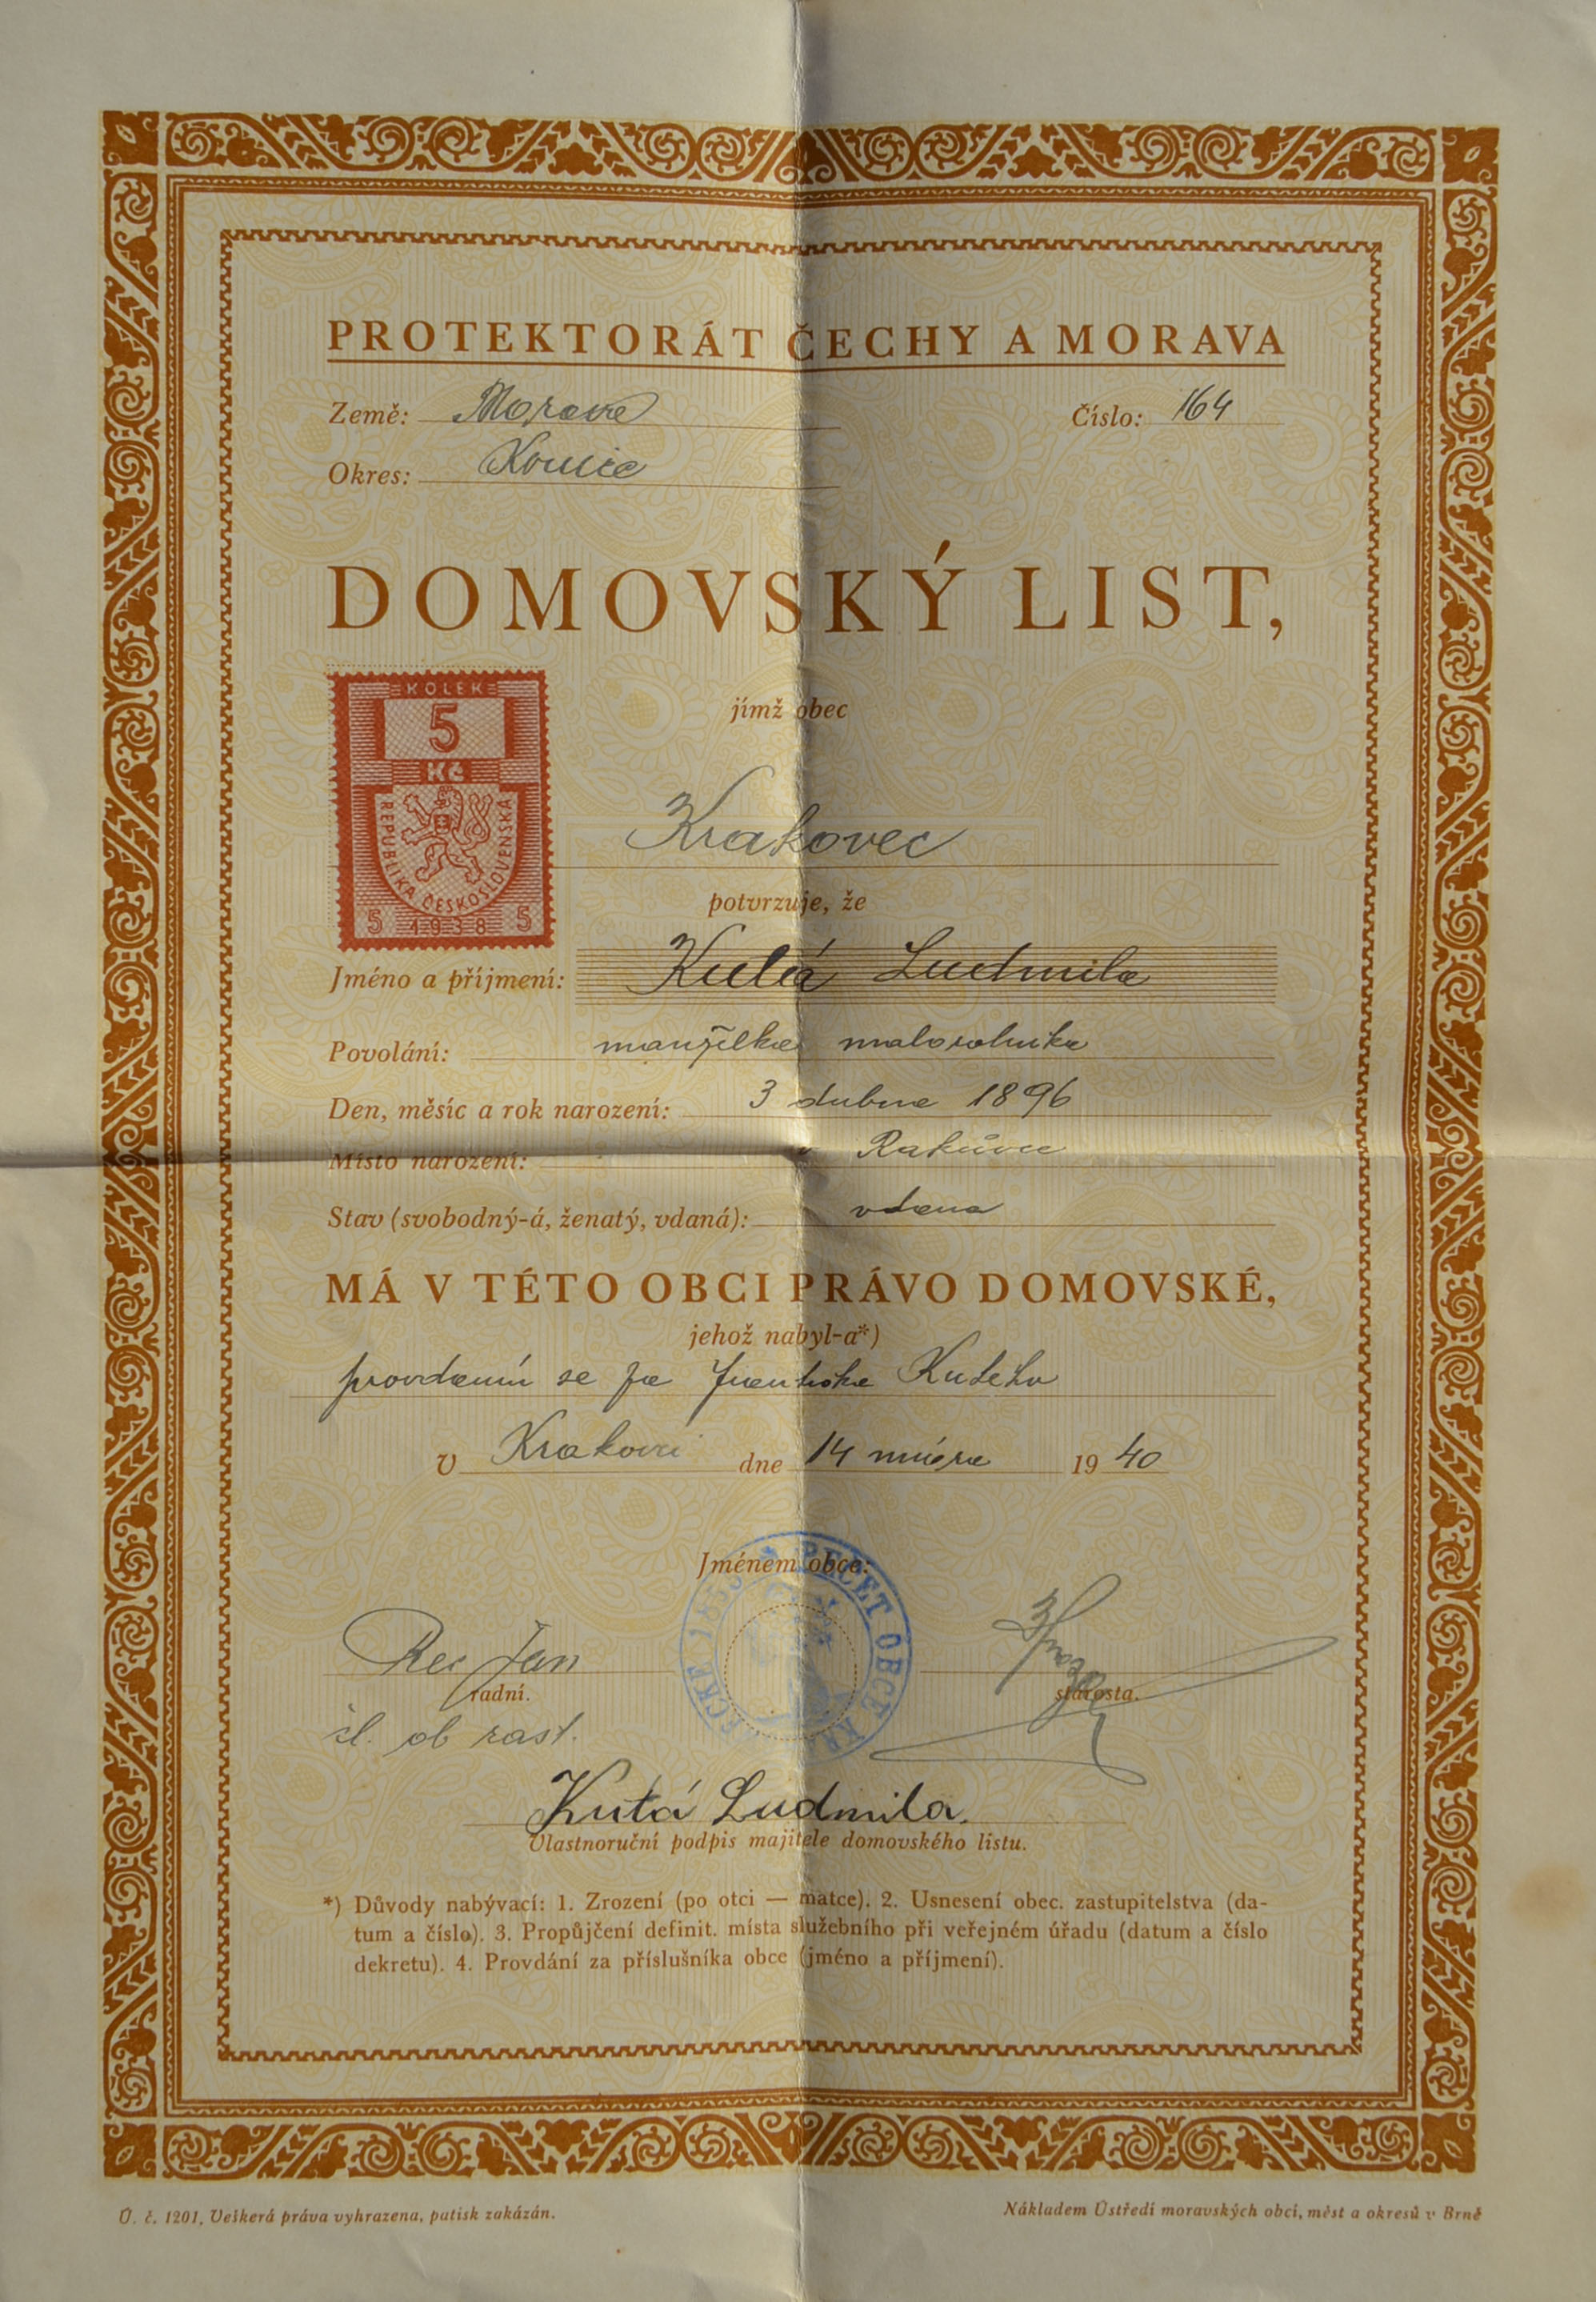 PROTEKTORÁT ČECHY A MORAVA
Země: Morava
Číslo: 164
Okres: Konice
DOMOVSKÝ LIST,
KOLEK
5
Kč
REPUBLIKA ČESKOSLOVENSKÁ
5 1938 5
jímž obec
Krakovec
potvrzuje, že
Jméno a příjmení: Kutá Ludmila
Povolání: manželka malorolníka
Den, měsíc a rok narození: 3 dubna 1896
Místo narození: v Rakůvce
Stav (svobodný-á, ženatý, vdaná): vdana
MÁ V TÉTO OBCI PRÁVO DOMOVSKÉ,
jehož nabyl-a*)
provdáním se za Františka Kutého
v Krakovci dne 14 února 1940
Jménem obce:
PEČEŤ OBCE
Rec Jan
radní.
starosta.
čl. ob zast.
Kutá Ludmila.
Vlastnoruční podpis majitele domovského listu.
*) Důvody nabývací: 1. Zrození (po otci — matce). 2. Usnesení obec. zastupitelstva (da-
tum a číslo). 3. Propůjčení definit. místa služebního při veřejném úřadu (datum a číslo
dekretu). 4. Provdání za příslušníka obce (jméno a příjmení).
Ú. č. 1201, Veškerá práva vyhrazena, patisk zakázán.
Nákladem Ústředí moravských obcí, měst a okresů v Brně